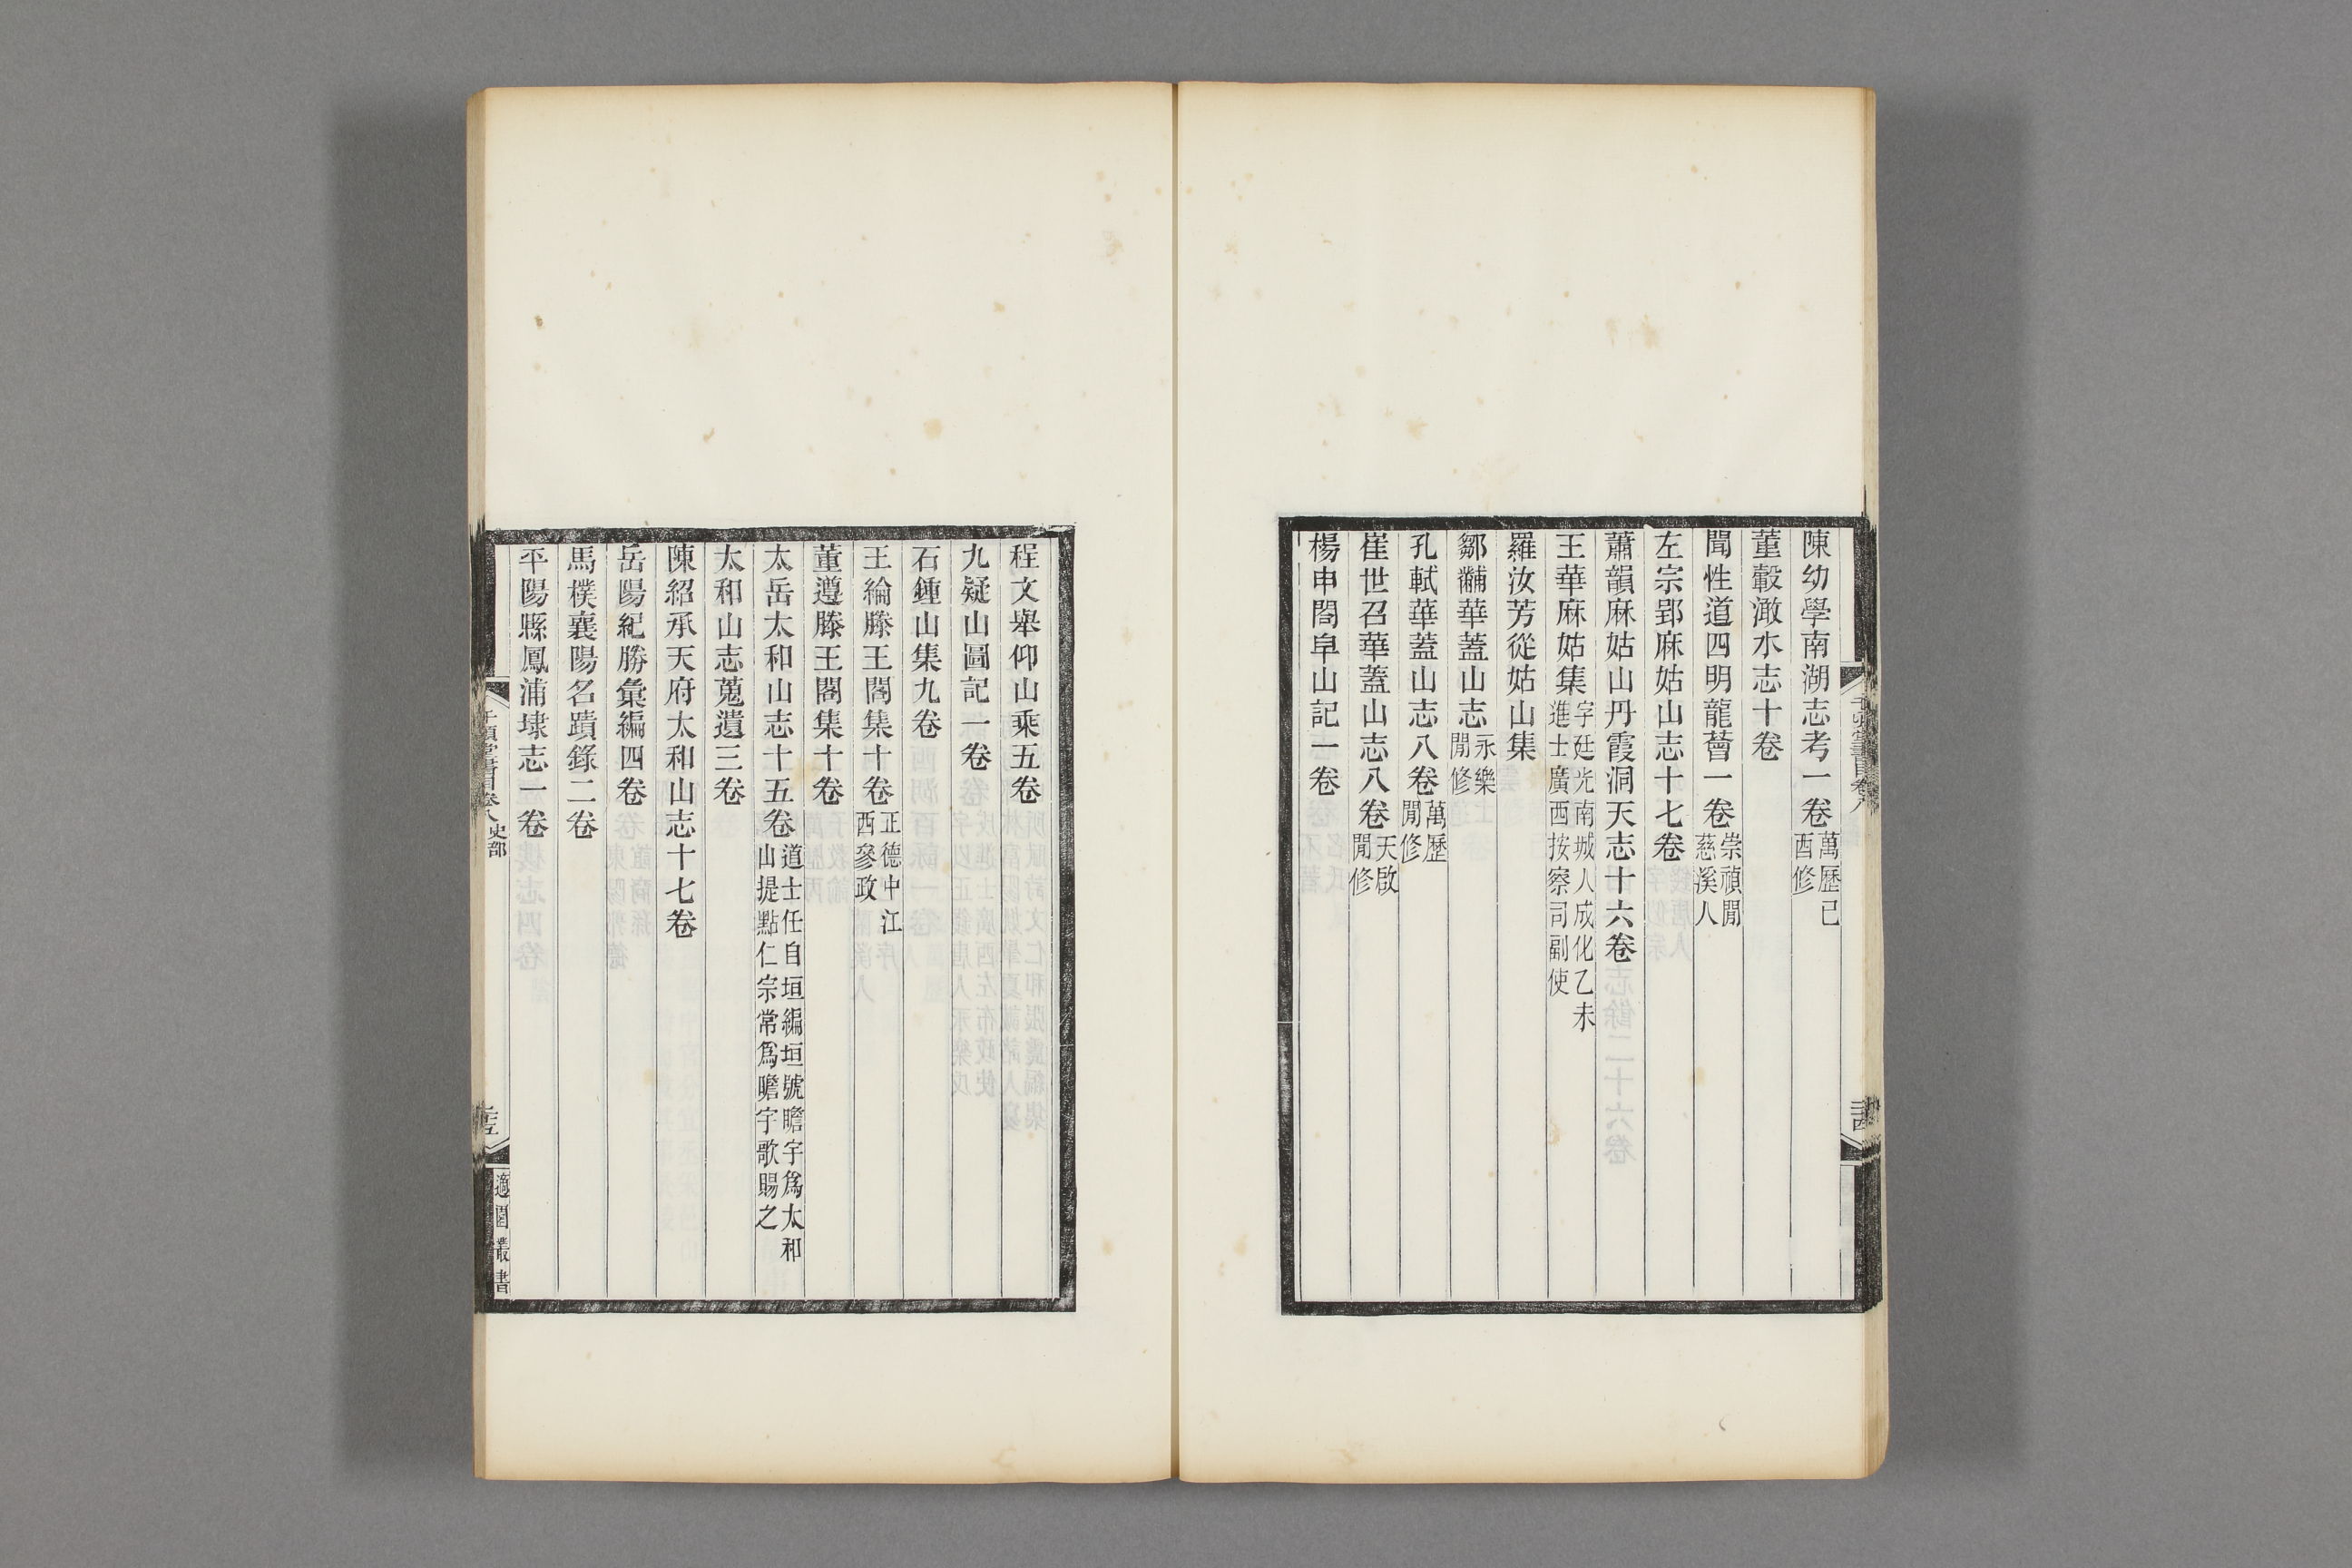 陳幼學南湖志考一卷萬歷己酉修
董轂澉水志十卷
聞性道四明龍薈一卷崇禎閒慈溪人
左宗郢麻姑山志十七卷
蕭韻麻姑山丹霞洞天志十六卷
王華麻姑集字廷光南城人成化乙未進士廣西按察司副使
羅汝芳從姑山集
鄒黼華蓋山志永樂閒修
孔軾華蓋山志八卷萬歷閒修
崔世召華蓋山志八卷天啟閒修
楊申閤皁山記一卷
程文舉仰山乘五卷
九疑山圖記一卷
石鍾山集九卷
王綸滕王閣集十卷正德中江西參政
董遵滕王閣集十卷
太岳太和山志十五卷道士任自垣編垣號瞻宇爲太和山提點仁宗常爲瞻宇歌賜之
太和山志蒐遺三卷
陳紹承天府太和山志十七卷
岳陽紀勝彙編四卷
馬樸襄陽名蹟錄二卷
平陽縣鳳浦埭志一卷
千頃堂書目卷八史部
適園叢書